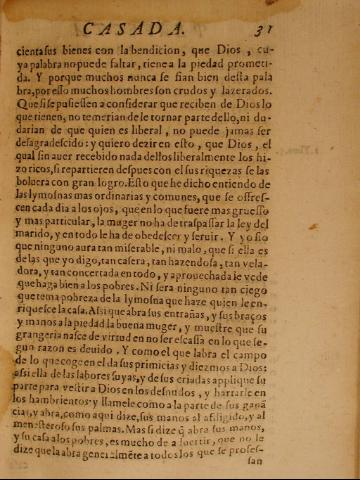 CASADA. 31
cienta sus bienes con la bendicion, que Dios, cu-
ya palabra no puede faltar, tiene a la piedad prometi-
da. Y porque muchos nunca se fian bien desta pala
bra, por esso muchos hombres son crudos y lazerados.
Que si se pusiessen a considerar que reciben de Dios lo
que tienen, no temerian de le tornar parte dello, ni du-
darian de que quien es liberal, no puede jamas ser
desagradescido: y quiero dezir en esto, que Dios, el
qual sin auer recebido nada dellos liberalmente los hi-
zo ricos, si repartieren despues con el sus riquezas se las
boluera con gran logro. Esto que he dicho entiendo de
las lymosnas mas ordinarias y comunes, que se offres-
cen cada dia a los ojos, que en lo que fuere mas gruesso
y mas particular, la muger no ha de traspassar la ley del
marido, y en todo le ha de obedescer y seruir. Y yo fio
que ninguno aura tan miserable, ni malo, que si ella es
de las que yo digo, tan casera, tan hazendosa, tan vela-
dora, y tan concertada en todo, y aprouechada le vede
que haga bien a los pobres. Ni sera ninguno tan ciego
que tema pobreza de la lymosna que haze quien le en-
riquesce la casa. Assi que abra sus entrañas, y sus braços
y manos a la piedad la buena muger, y muestre que su
grangeria nasce de virtud en no ser escassa en lo que se-
gun razon es deuido. Y como el que labra el campo
de lo que coge en el da sus primicias y diezmos a Dios:
assi ella de las labores suyas, y de sus criadas applique su
parte para vestir a Dios en los desnudos, y hartarle en
los hambrientos: y llamele como a la parte de sus gana
cias, y abra, como aqui dize, sus manos al afligido, y al
menesteroso sus palmas. Mas si dize q̃ abra sus manos,
y su casa a los pobres, es mucho de aduertir, que no le
dize que la abra generalmẽte a todos los que se profes-
san